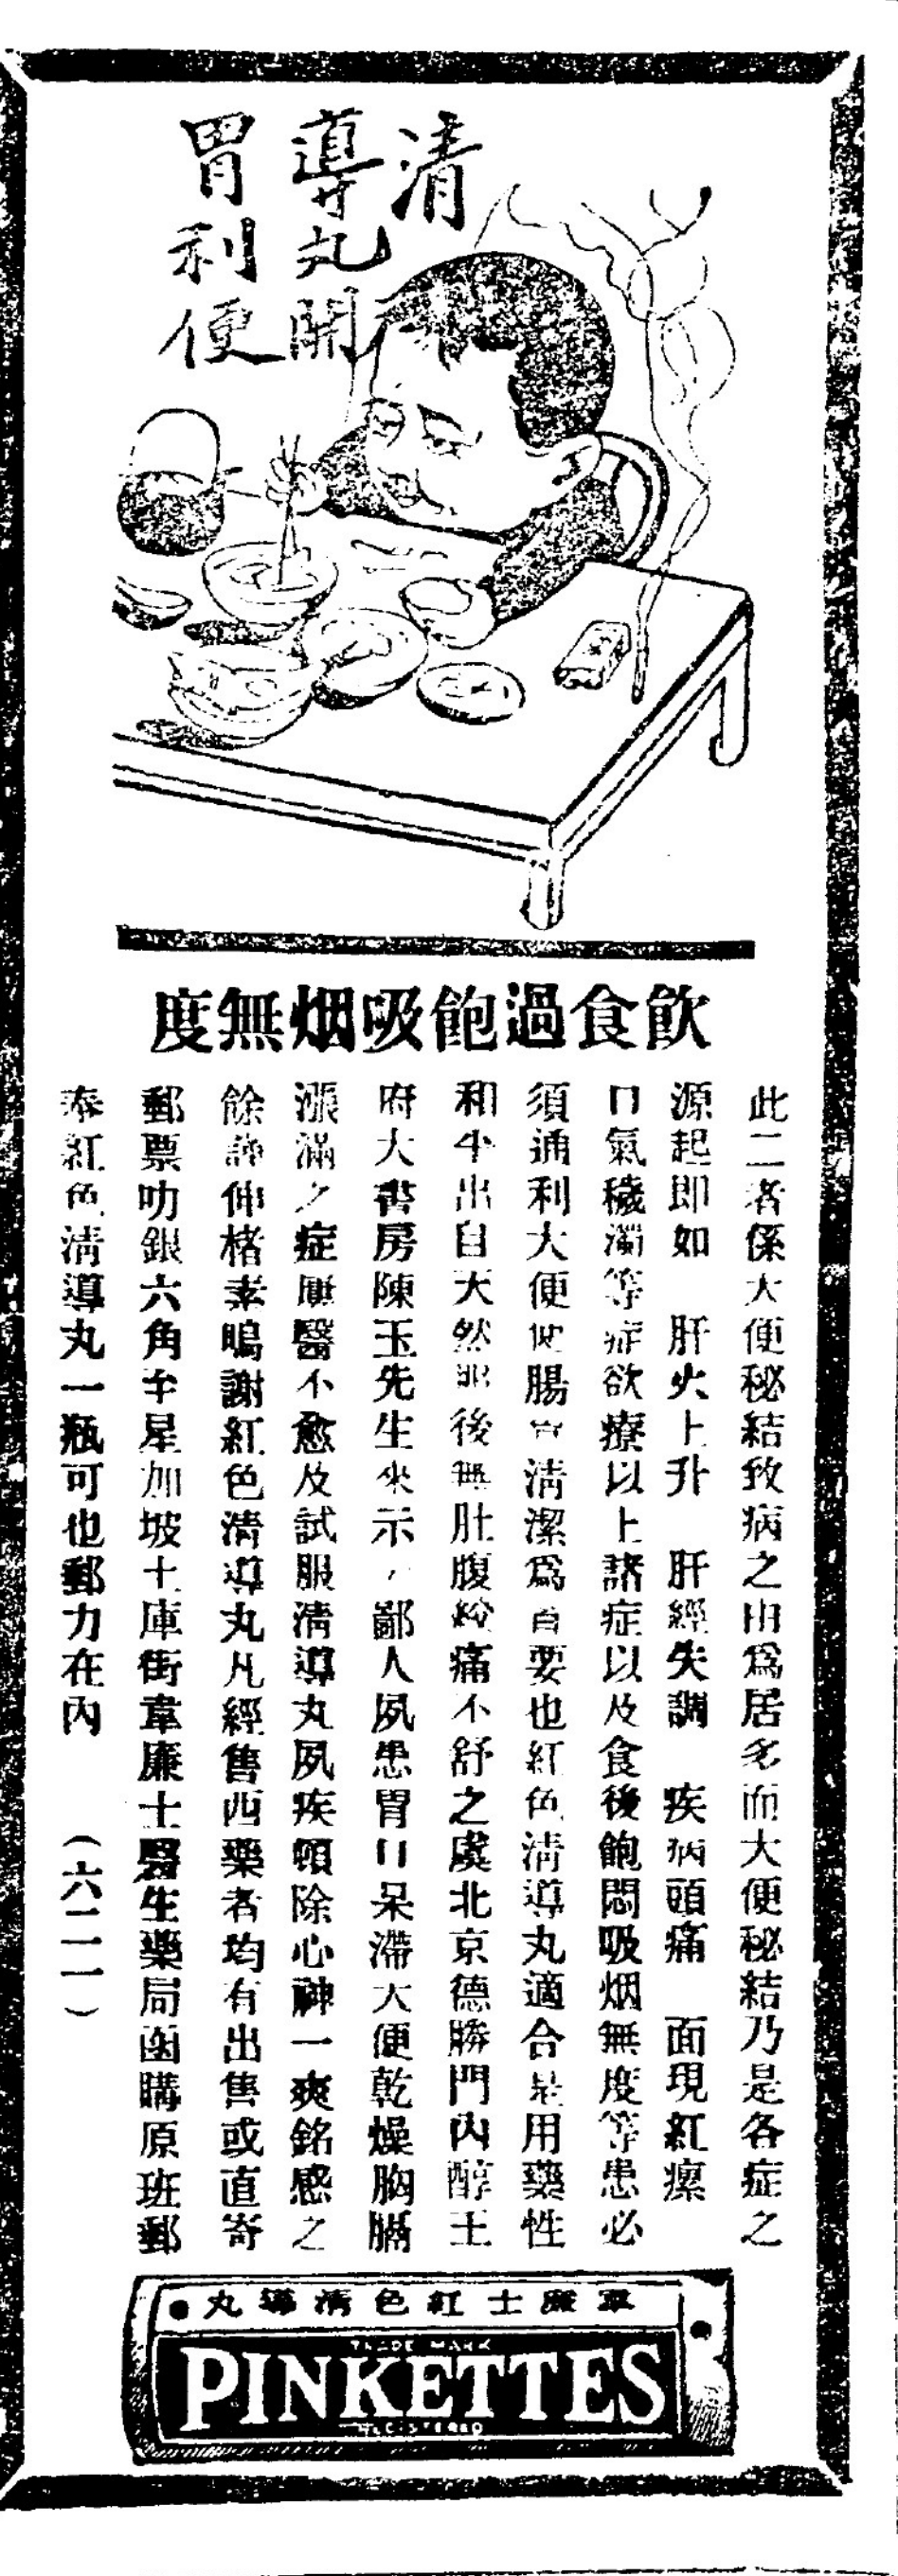 清
導丸開
胃利便
飲食過飽吸烟無度
此二者係大便秘結致病之由爲居多而大便秘結乃是各症之
源起即如 肝火上升 肝經失調 疾病頭痛 面現紅瘰
口氣穢濁等症欲療以上諸症以及食後飽悶吸烟無度等患必
須通利大便使腸胃清潔爲首要也紅色清導丸適合是用藥性
和平出自天然服後無肚腹絞痛不舒之虞北京德勝門內醇王
府大書房陳玉先生來示鄙人夙患胃口呆滯大便乾燥胸膈
漲滿之症屢醫不愈及試服清導丸夙疾頓除心神一爽銘感之
餘謹伸楮素鳴謝紅色清導丸凡經售西藥者均有出售或直寄
郵票叻銀六角至星加坡土庫街韋廉士醫生藥局函購原班郵
奉紅色清導丸一瓶可也郵力在內 (六二一)
韋廉士紅色清導丸
TRADE MARK
PINKETTES
REGISTERED